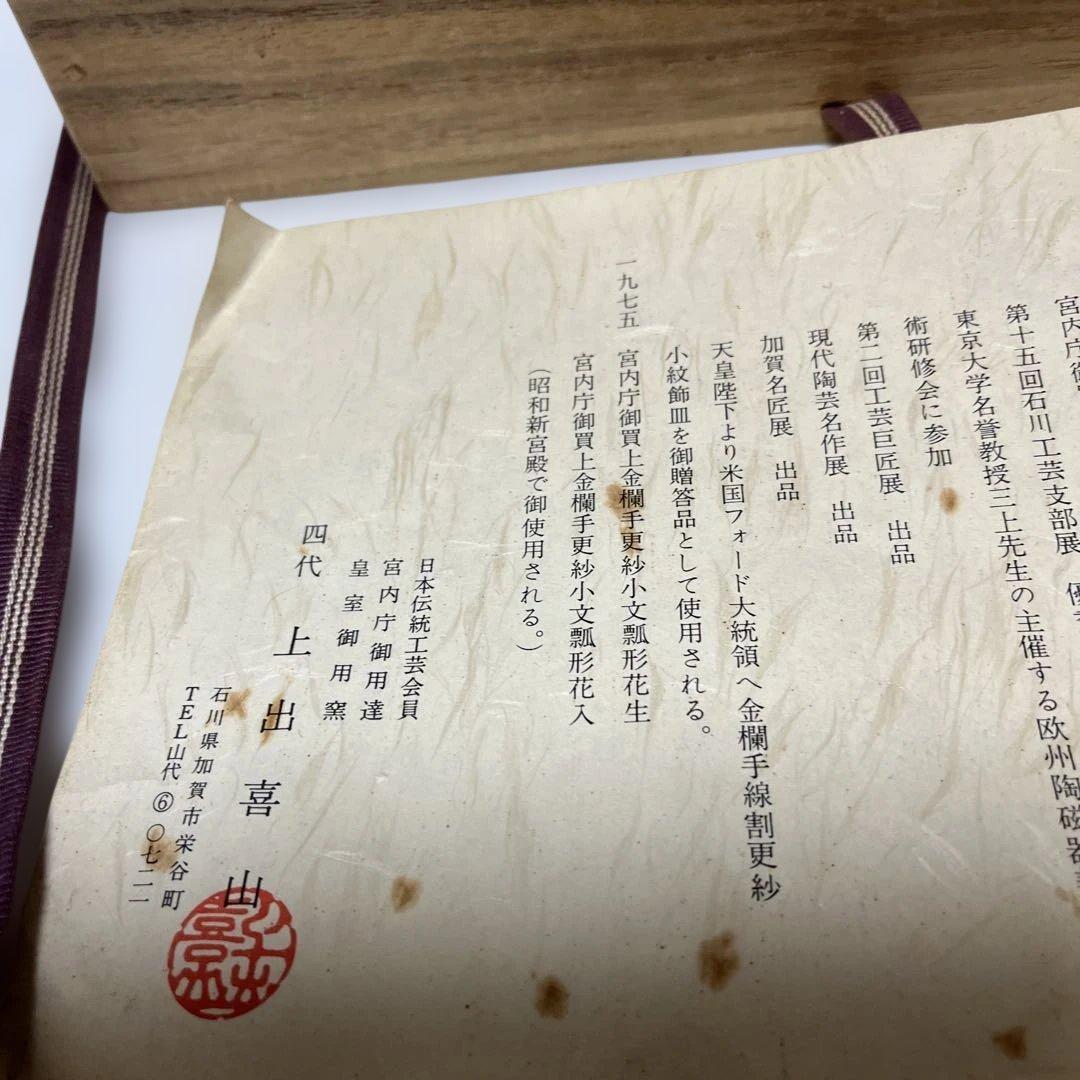 宮内庁御
第十五回石川工芸支部展　優
東京大学名誉教授三上先生の主催する欧州陶磁器
術研修会に参加
第二回工芸巨匠展　出品
現代陶芸名作展　出品
加賀名匠展　出品
天皇陛下より米国フォード大統領へ金襴手線割更紗
小紋飾皿を御贈答品として使用される。
一九七五　宮内庁御買上金襴手更紗小文瓢形花生
宮内庁御買上金襴手更紗小文瓢形花入
（昭和新宮殿で御使用される。）
日本伝統工芸会員
宮内庁御用達
皇室御用窯
四代　上出喜山
石川県加賀市栄谷町
TEL山代⑥〇七二一